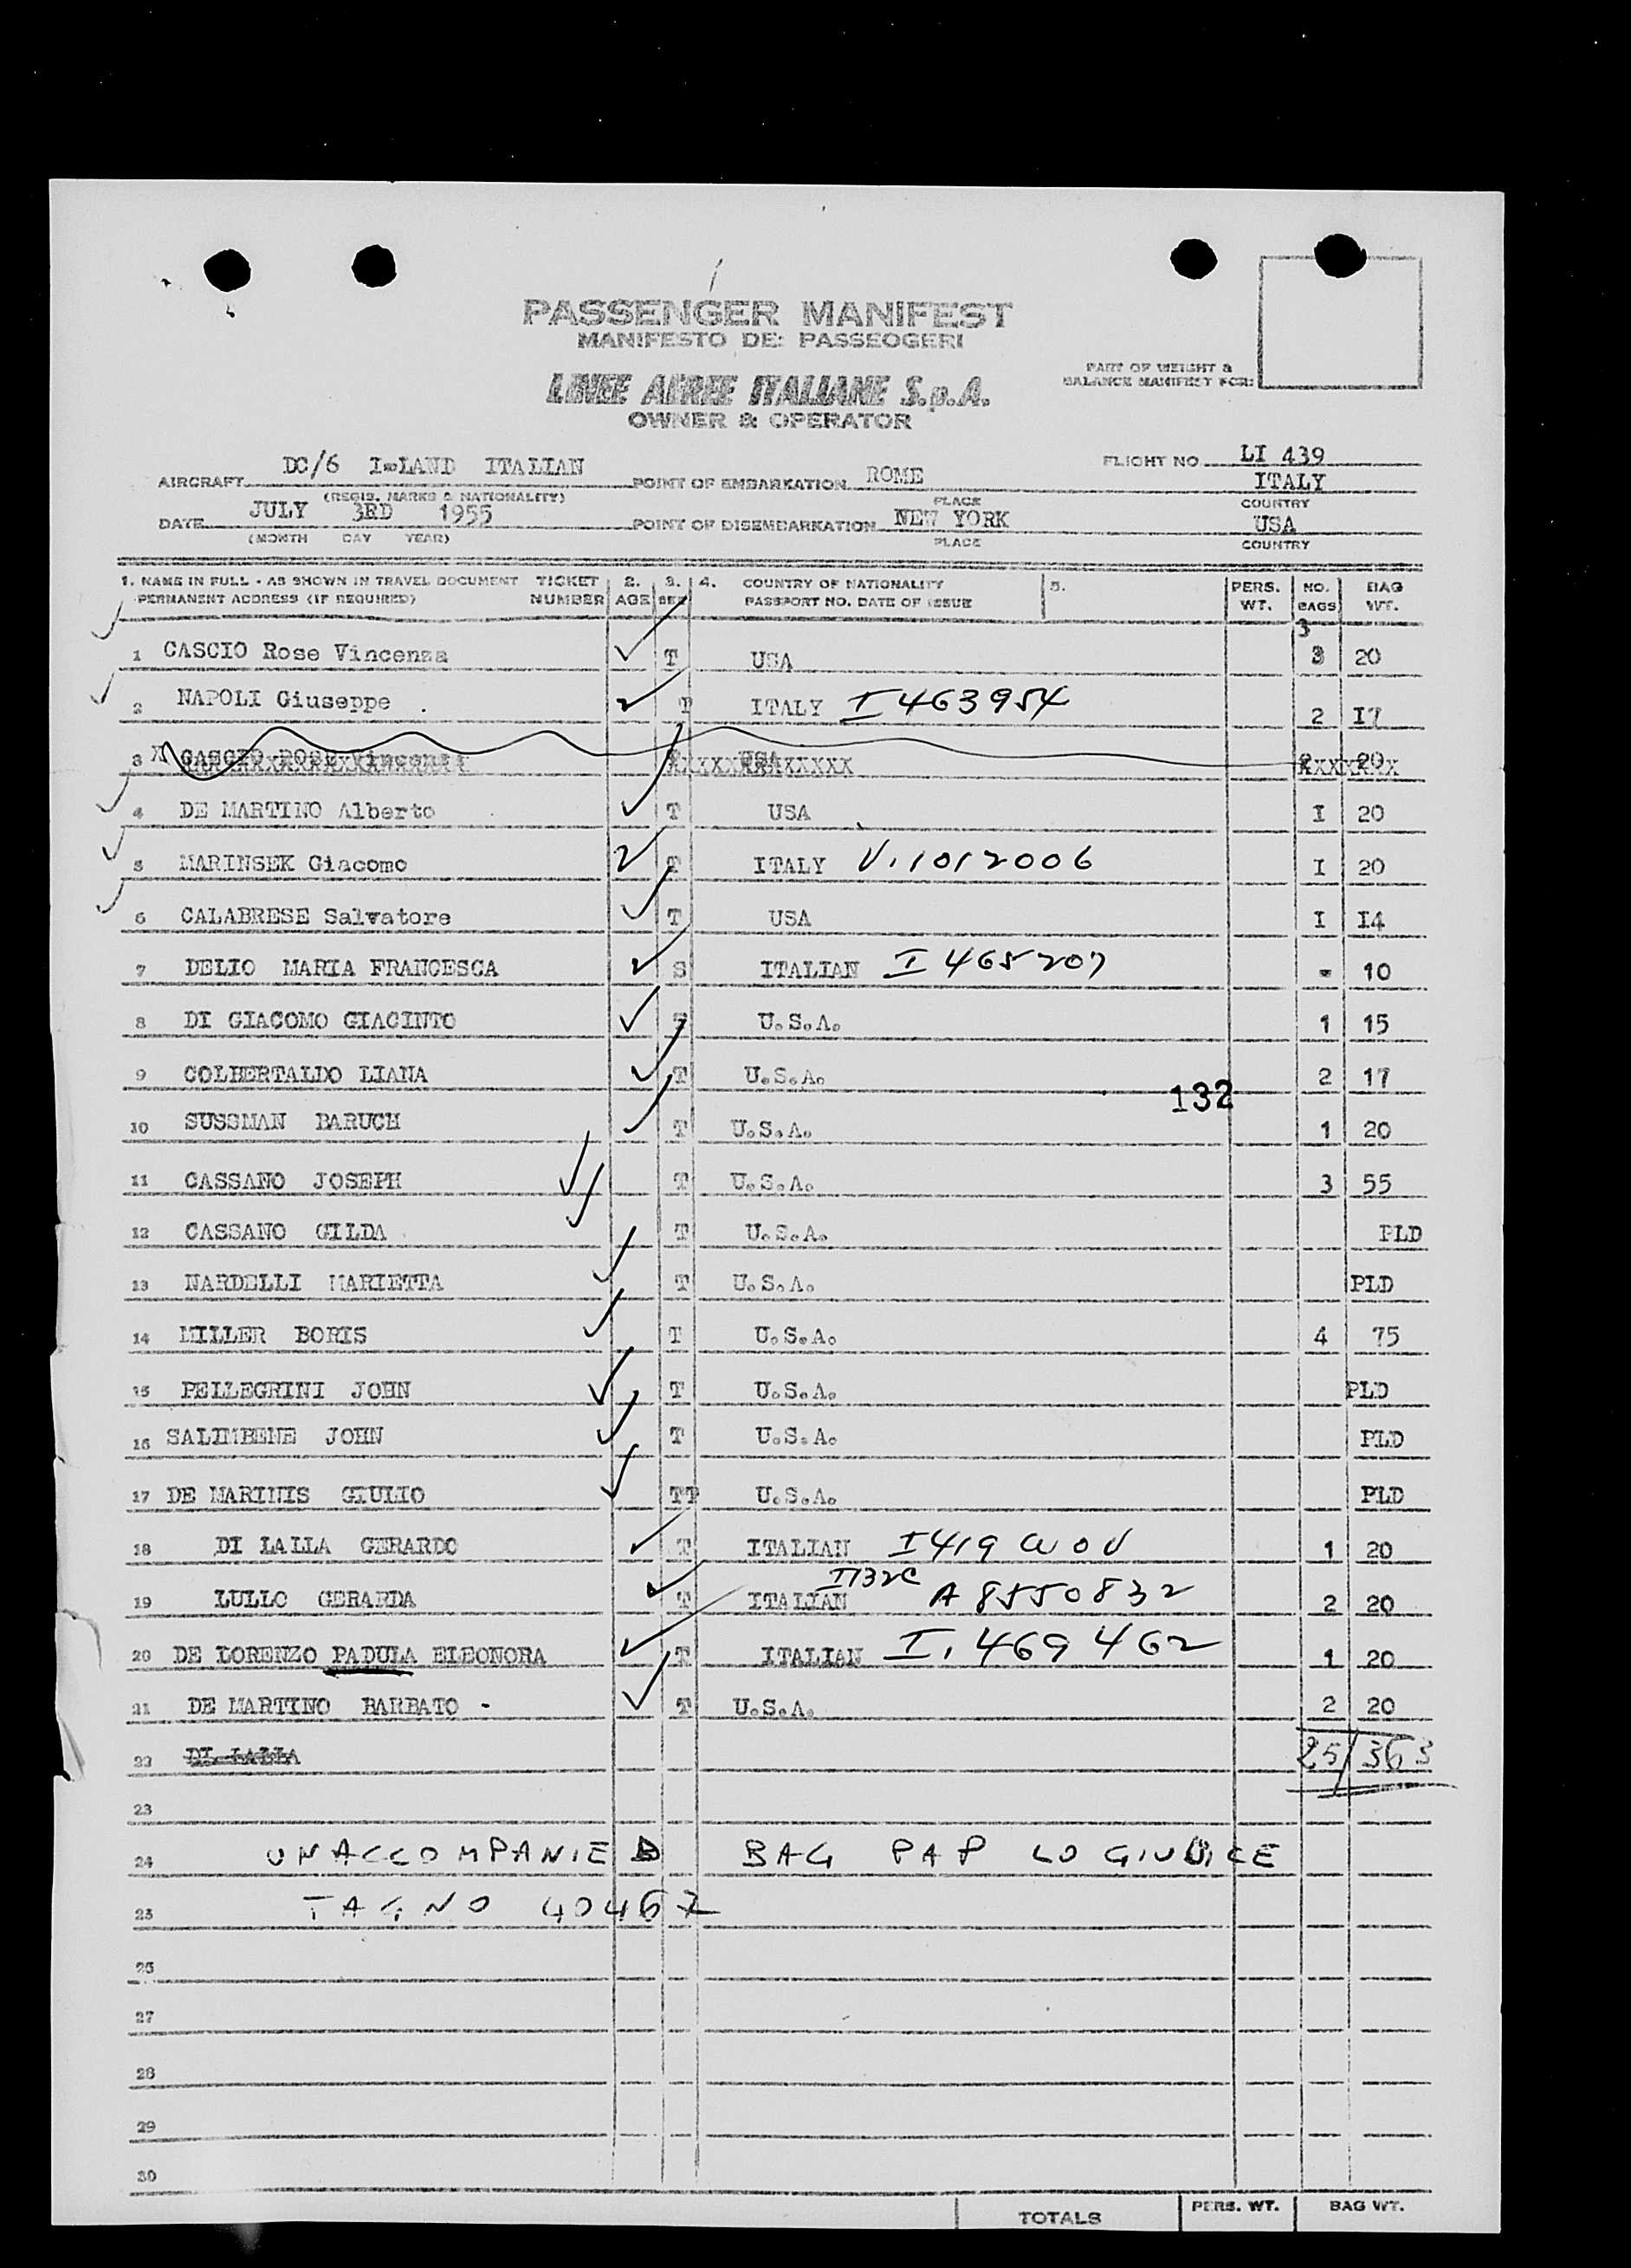 PASSENGER MANIFEST
MANIFESTO DEI PASSEGGERI
PART OF WEIGHT &
BALANCE MANIFEST FOR:
LINEE AEREE ITALIANE S.p.A.
OWNER & OPERATOR
AIRCRAFT DC/6 I-LAND ITALIAN
(REGIS. MARKS & NATIONALITY)
POINT OF EMBARKATION ROME
PLACE
FLIGHT NO. LI 439
ITALY
COUNTRY
DATE JULY 3RD 1955
(MONTH DAY YEAR)
POINT OF DISEMBARKATION NEW YORK
PLACE
USA
COUNTRY
1. NAME IN FULL - AS SHOWN IN TRAVEL DOCUMENT TICKET 2. 3. 4. COUNTRY OF NATIONALITY 5. PERS. NO. BAG
PERMANENT ADDRESS (IF REQUIRED) NUMBER AGE SEX PASSPORT NO. DATE OF ISSUE WT. BAGS WT.
3
1 CASCIO Rose Vincenza T USA 3 20
2 NAPOLI Giuseppe . T ITALY I 463954 2 I7
3 X CASCIO ROSE Vincenza T USA 2 20
4 DE MARTINO Alberto T USA I 20
5 MARINSEK Giacomo T ITALY V.1012006 I 20
6 CALABRESE Salvatore T USA I I4
7 DELIO MARIA FRANCESCA S ITALIAN I 465207 - 10
8 DI GIACOMO GIACINTO U.S.A. 1 15
9 COLBERTALDO LIANA T U.S.A. 2 17
132
10 SUSSMAN BARUCH T U.S.A. 1 20
11 CASSANO JOSEPH T U.S.A. 3 55
12 CASSANO GILDA T U.S.A. PLD
13 NARDELLI MARIETTA T U.S.A. PLD
14 MILLER BORIS T U.S.A. 4 75
15 PELLEGRINI JOHN T U.S.A. PLD
16 SALIMBENE JOHN T U.S.A. PLD
17 DE MARINIS GIULIO TT U.S.A. PLD
18 DI LALLA GERARDO T ITALIAN I419 1 20
19 LULLO GERARDA T ITALIAN A 8550832 2 20
20 DE LORENZO PADULA ELEONORA T ITALIAN I. 469 462 1 20
21 DE MARTINO BARBATO - T U.S.A. 2 20
22 DI LALLA 25/363
23
24 UNACCOMPANIED BAG PAP LO GIUDICE
25 TAG NO 40467
26
27
28
29
30
TOTALS PERS. WT. BAG WT.